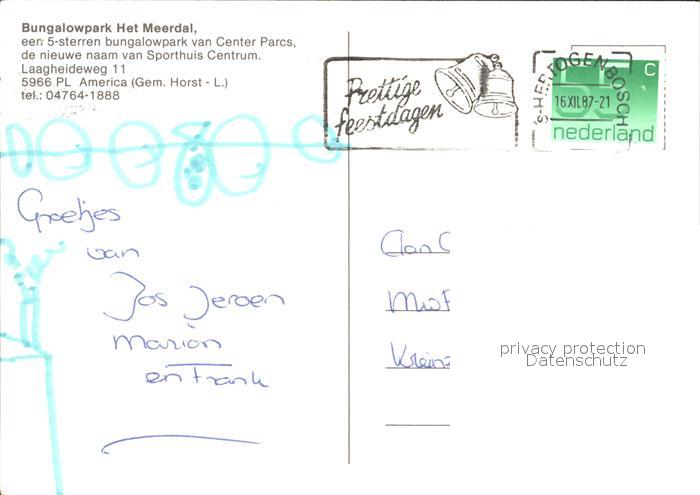 Bungalowpark Het Meerdal,
een 5-sterren bungalowpark van Center Parcs,
de nieuwe naam van Sporthuis Centrum.
Laagheideweg 11
5966 PL America (Gem. Horst - L.)
tel.: 04764-1888
Prettige
feestdagen
's-HERTOGENBOSCH
16XII.87-21
55 C
nederland
Groetjes
van
Jos Jeroen
Marion
en Frank
privacy protection
Datenschutz